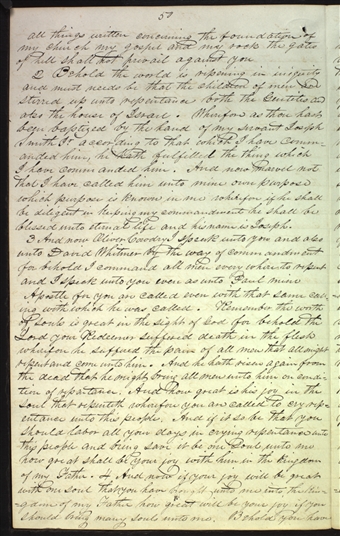 50
all things written concerning the foundation of
my church my gospel and my rock the gates
of hell shall not prevail against you
2 Behold the world is ripening in iniquity
and must needs be that the children of men are
stirred up unto repentance both the Gentiles and
also the house of Israel. Wherefore as thou hast
been baptized by the hand of my servant Joseph
Smith Jr according to that which I have comm-
anded him, he hath fulfilled the thing which
I have commanded him. And now marvel not
that I have called him unto mine own purpose
which purpose is known in me wherefore if he shall
be diligent in keeping my commandments he shall be
blessed unto eternal life and his name is Joseph.
3 And now Oliver Cowdery I speak unto you and also
unto David Whitmer by the way of commandment
for behold I command all men every where to repent
and I speak unto you even as unto Paul mine
Apostle for you are called even with that same call-
ing with which he was called. Remember the worth
of souls is great in the sight of God for behold the
Lord your Redeemer suffered death in the flesh
wherefore he suffered the pain of all men that all might
repent and come unto him. And he hath risen again from
the dead that he might bring all men unto him on cond-
ition of repentance. And how great is his joy in the
soul that repenteth wherefore you are called to cry rep-
entance unto this people. And if it so be that you
should labor all your days in crying repentance unto
this people and bring save it be one soul unto me
how great shall be your joy with him in the Kingdom
of my Father. 4 And now if your joy will be great
with one soul that you have brought unto me into the kin-
gdom of my Father how great will be your joy if you
should bring many souls unto me. Behold you have